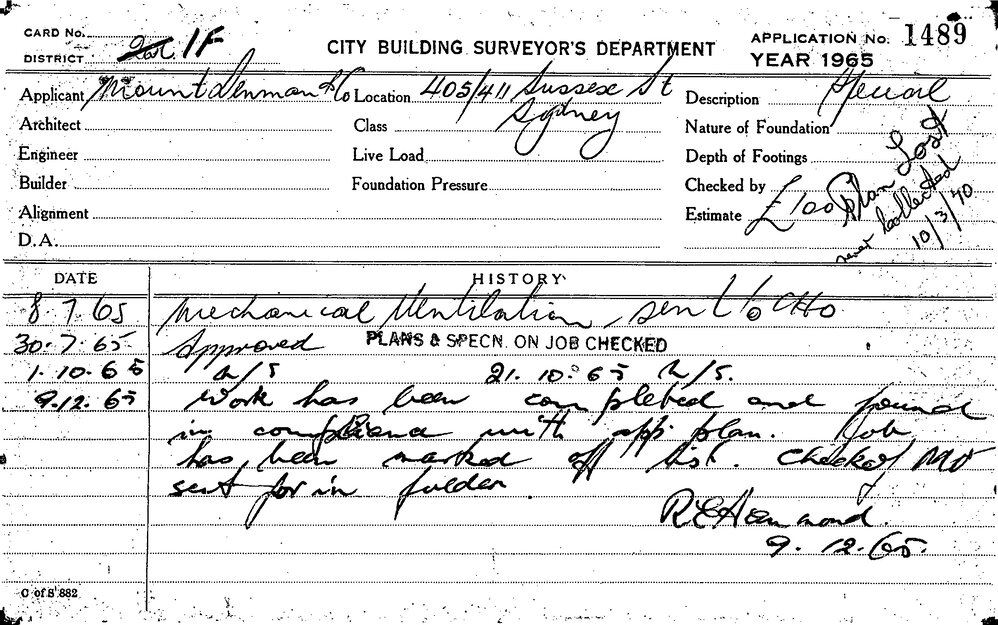 CARD No.
DISTRICT 1F
CITY BUILDING SURVEYOR'S DEPARTMENT
APPLICATION No. 1489
YEAR 1965
Applicant Mount Denman & Co
Location 405/411 Sussex St
Sydney
Description Special
Architect
Class
Nature of Foundation
Engineer
Live Load
Depth of Footings
Builder
Foundation Pressure
Checked by
Alignment
Estimate £100
D.A.
Plan Lost
never collected
10/3/70
DATE HISTORY
8 7.65 Mechanical Ventilation, sent to CHO
30.7.65 Approved PLANS & SPECN. ON JOB CHECKED
1.10.65 N/S 21.10.65 N/S.
9.12.65 Work has been completed and found
in compliance with app plan. Job
has been marked off list. Checked
sent for in folder.
R E Hammond.
9.12.65.
C of S 882